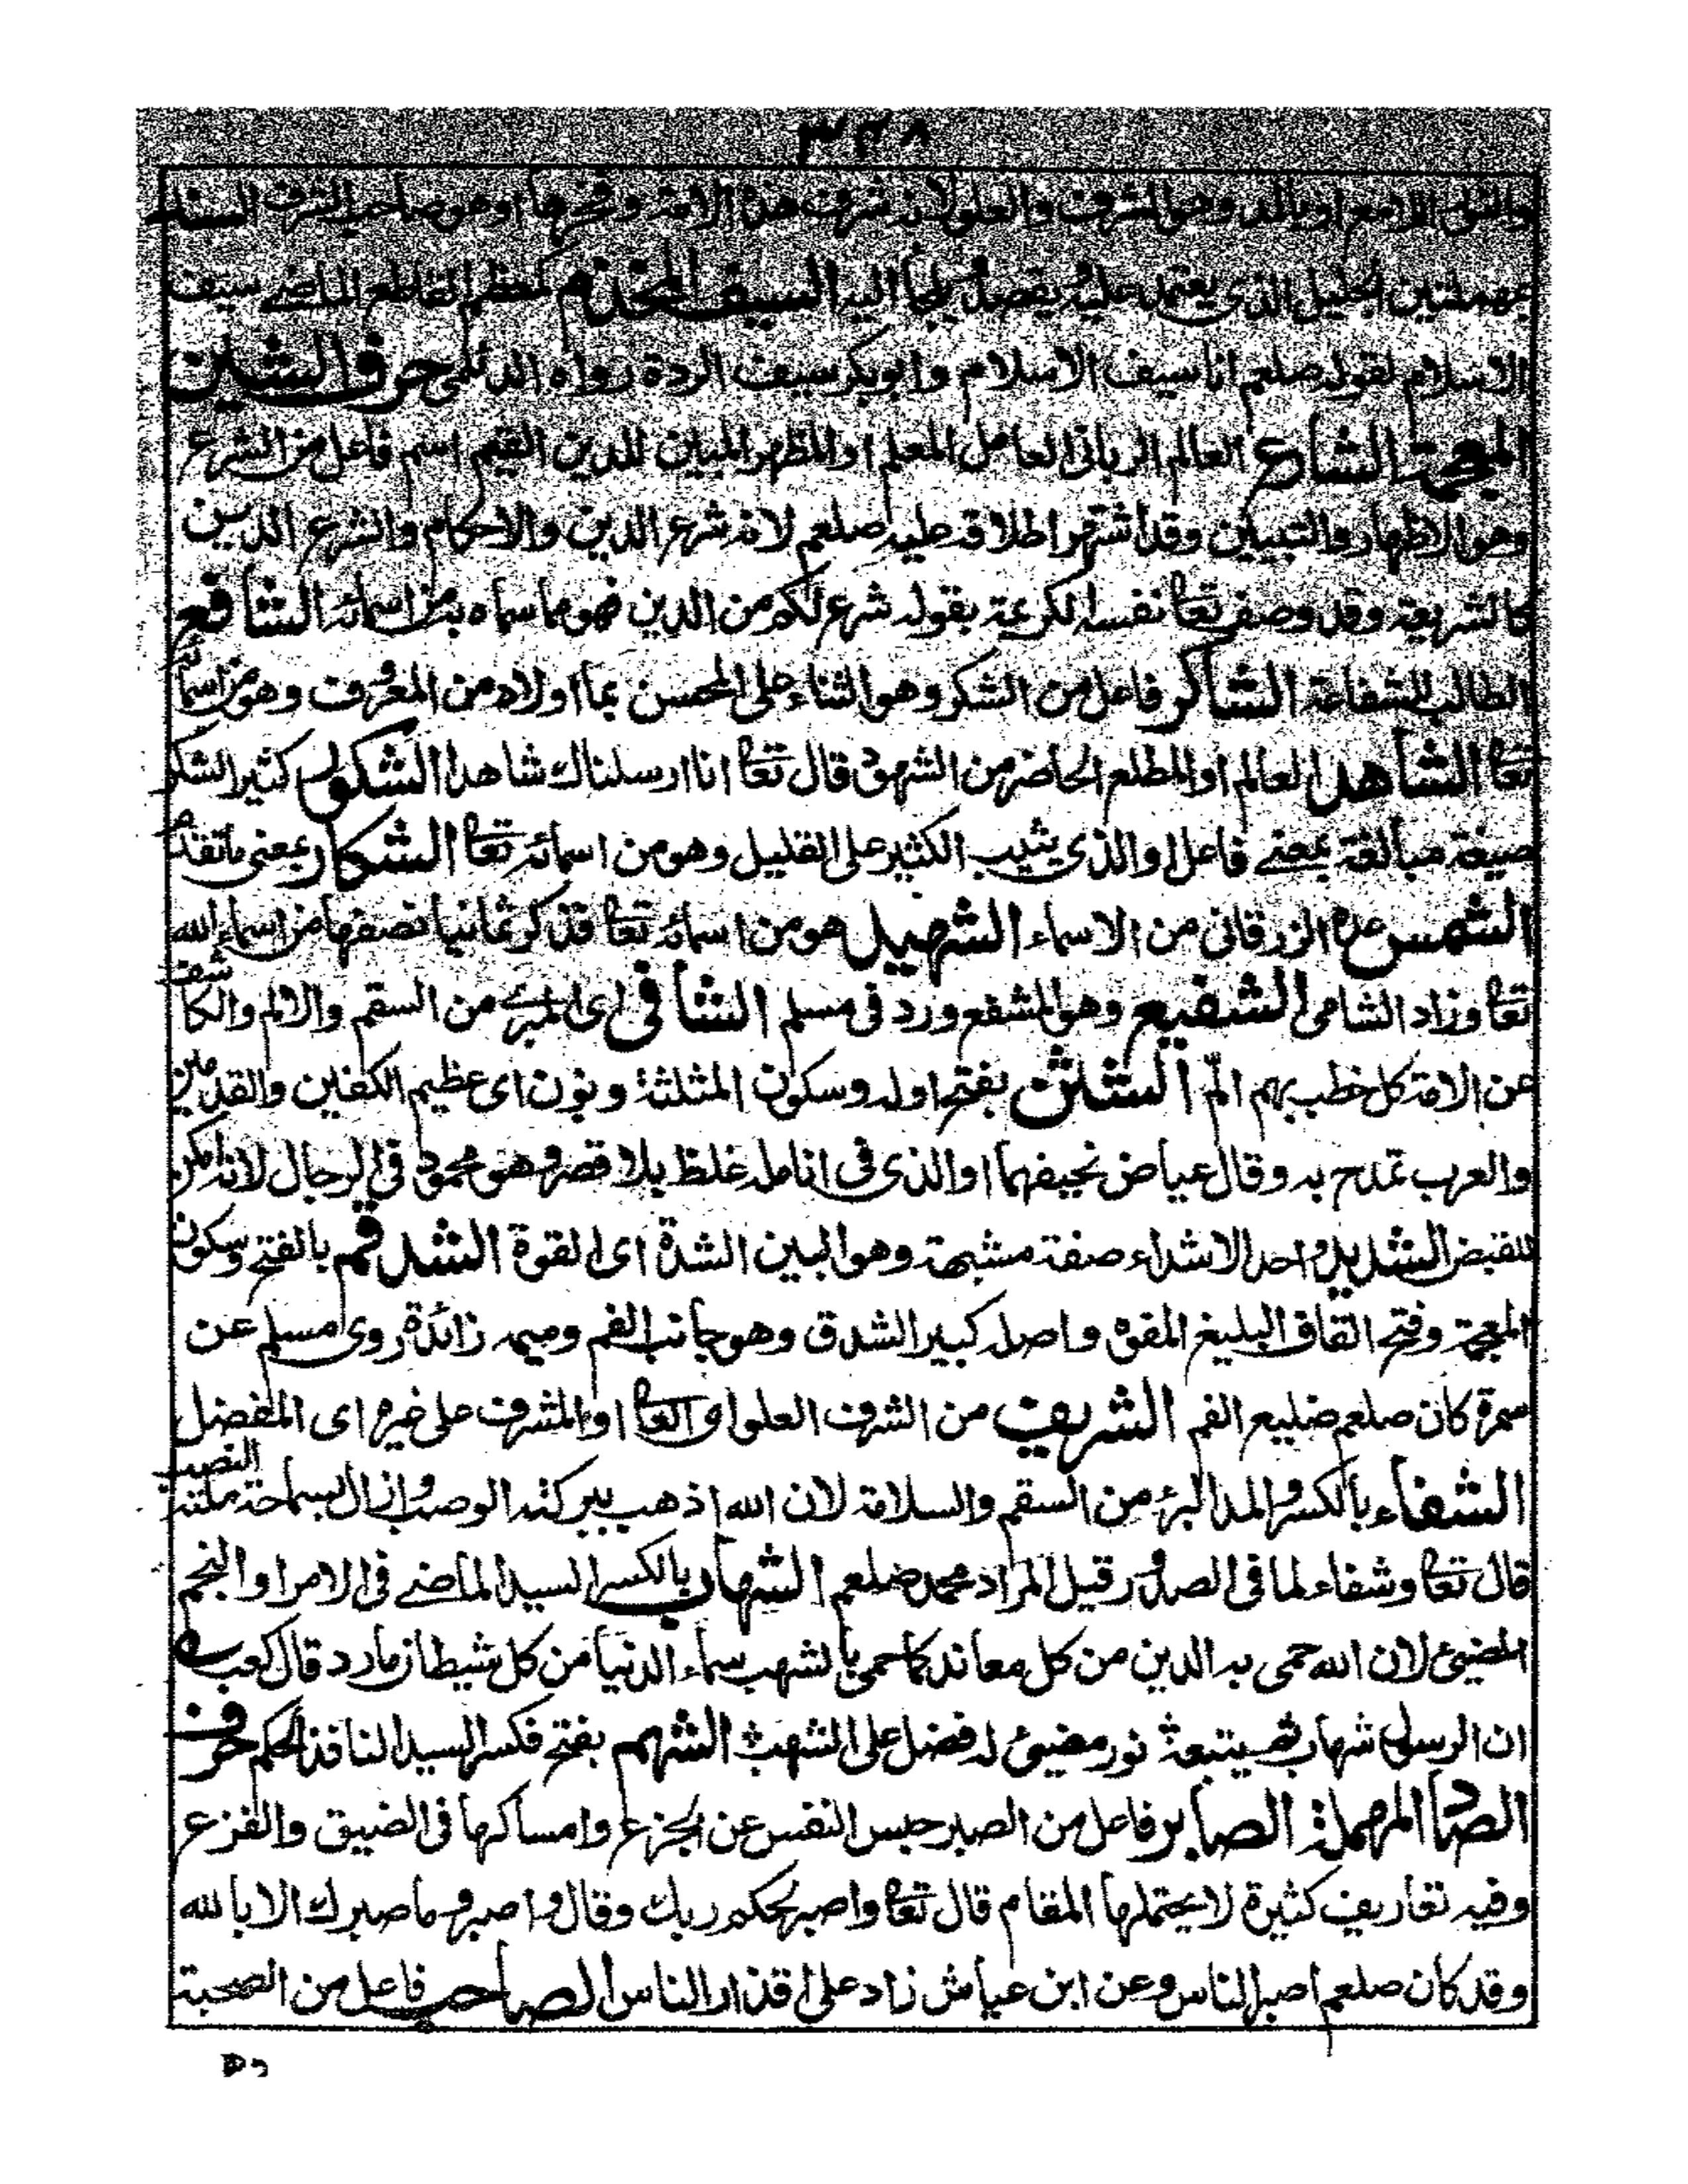 ٣٣٨
والنور اللامع او بالمد وهو الشرف والعلو لانه شرف هذه الامة وفخرها او هو صاحب الشرف السند
بمهملتين الجليل الذي يعتمد عليه ويقصد ويلجأ اليه السيف المخذم كمعظم القاطع الماضي سيف
الاسلام لقوله صلعم انا سيف الاسلام وابو بكر سيف الردة رواه الديلمي حرف الشين
المعجمة الشارع العالم الرباني العامل المعلم او المظهر المبين للدين القيم اسم فاعل من الشرع
وهو الاظهار والتبيين وقد اشتهر اطلاقه عليه صلعم لانه شرع الدين والاحكام والشرع الدين
كالشريعة وقد وصف تعا نفسه الكريمة بقوله شرع لكم من الدين فهو مما سماه به من اسمائه الشافع
الطالب للشفاعة الشاكر فاعل من الشكر وهو الثناء على المحسن بما اولاه من المعروف وهو من اسمائه
تعا الشاهد العالم او المطلع الحاضر من الشهود قال تعا انا ارسلناك شاهدا الشكور كثير الشكر
صيغة مبالغة بمعنى فاعل او الذي يثيب الكثير على القليل وهو من اسمائه تعا الشكار بمعنى ما تقدم
الشمس عده الزرقاني من الاسماء الشهيد هو من اسمائه تعا قد ذكر ثمانيا نصفها من اسماء الله
تعا وزاد الشامي الشفيع وهو المشفع ورد في مسلم الشافي اي المبرئ من السقم والالم والكاشف
عن الامة كل خطب بهم الم الشثن بفتح اوله وسكون المثلثة ونون اي عظيم الكفين والقدمين
والعرب تمدح به وقال عياض نحيفهما او الذي في انامله غلظ بلا قصر وهو محمود في الرجال لانه امكن
للقبض الشديد واحد الاشداء صفة مشبهة وهو البين الشدة اي القوة الشدقم بالفتح وسكون
المعجمة وفتح القاف البليغ المفوه واصله كبير الشدق وهو جانب الفم وميمه زائدة روى مسلم عن
سمرة كان صلعم ضليع الفم الشريف من الشرف العلو اي العا او المشرف على غيره اي المفضل
الشفاء بالكسر والمد البرء من السقم والسلامة لان الله اذهب ببركته الوصب وازال بسماحة ملته النصب
قال تعا وشفاء لما في الصدور قيل المراد محمد صلعم الشهاب بالكسر السيد الماضي في الامر او النجم
المضيئ لان الله حمى به الدين من كل معاند كما حمى بالشهب سماء الدنيا من كل شيطان مارد قال كعب
ان الرسول شهاب ثم يتبعه نور مضيئ له فضل على الشهب الشهم بفتح فكسر السيد النافذ الحكم حرف
الصاد المهملة الصابر فاعل من الصبر حبس النفس عن الجزع وامساكها في الضيق والفزع
وفيه تعاريف كثيرة لا يحتملها المقام قال تعا واصبر لحكم ربك وقال واصبر وما صبرك الا بالله
وقد كان صلعم اصبر الناس وعن ابن عياش زاد على اقذار الناس الصاحب فاعل من الصحبة